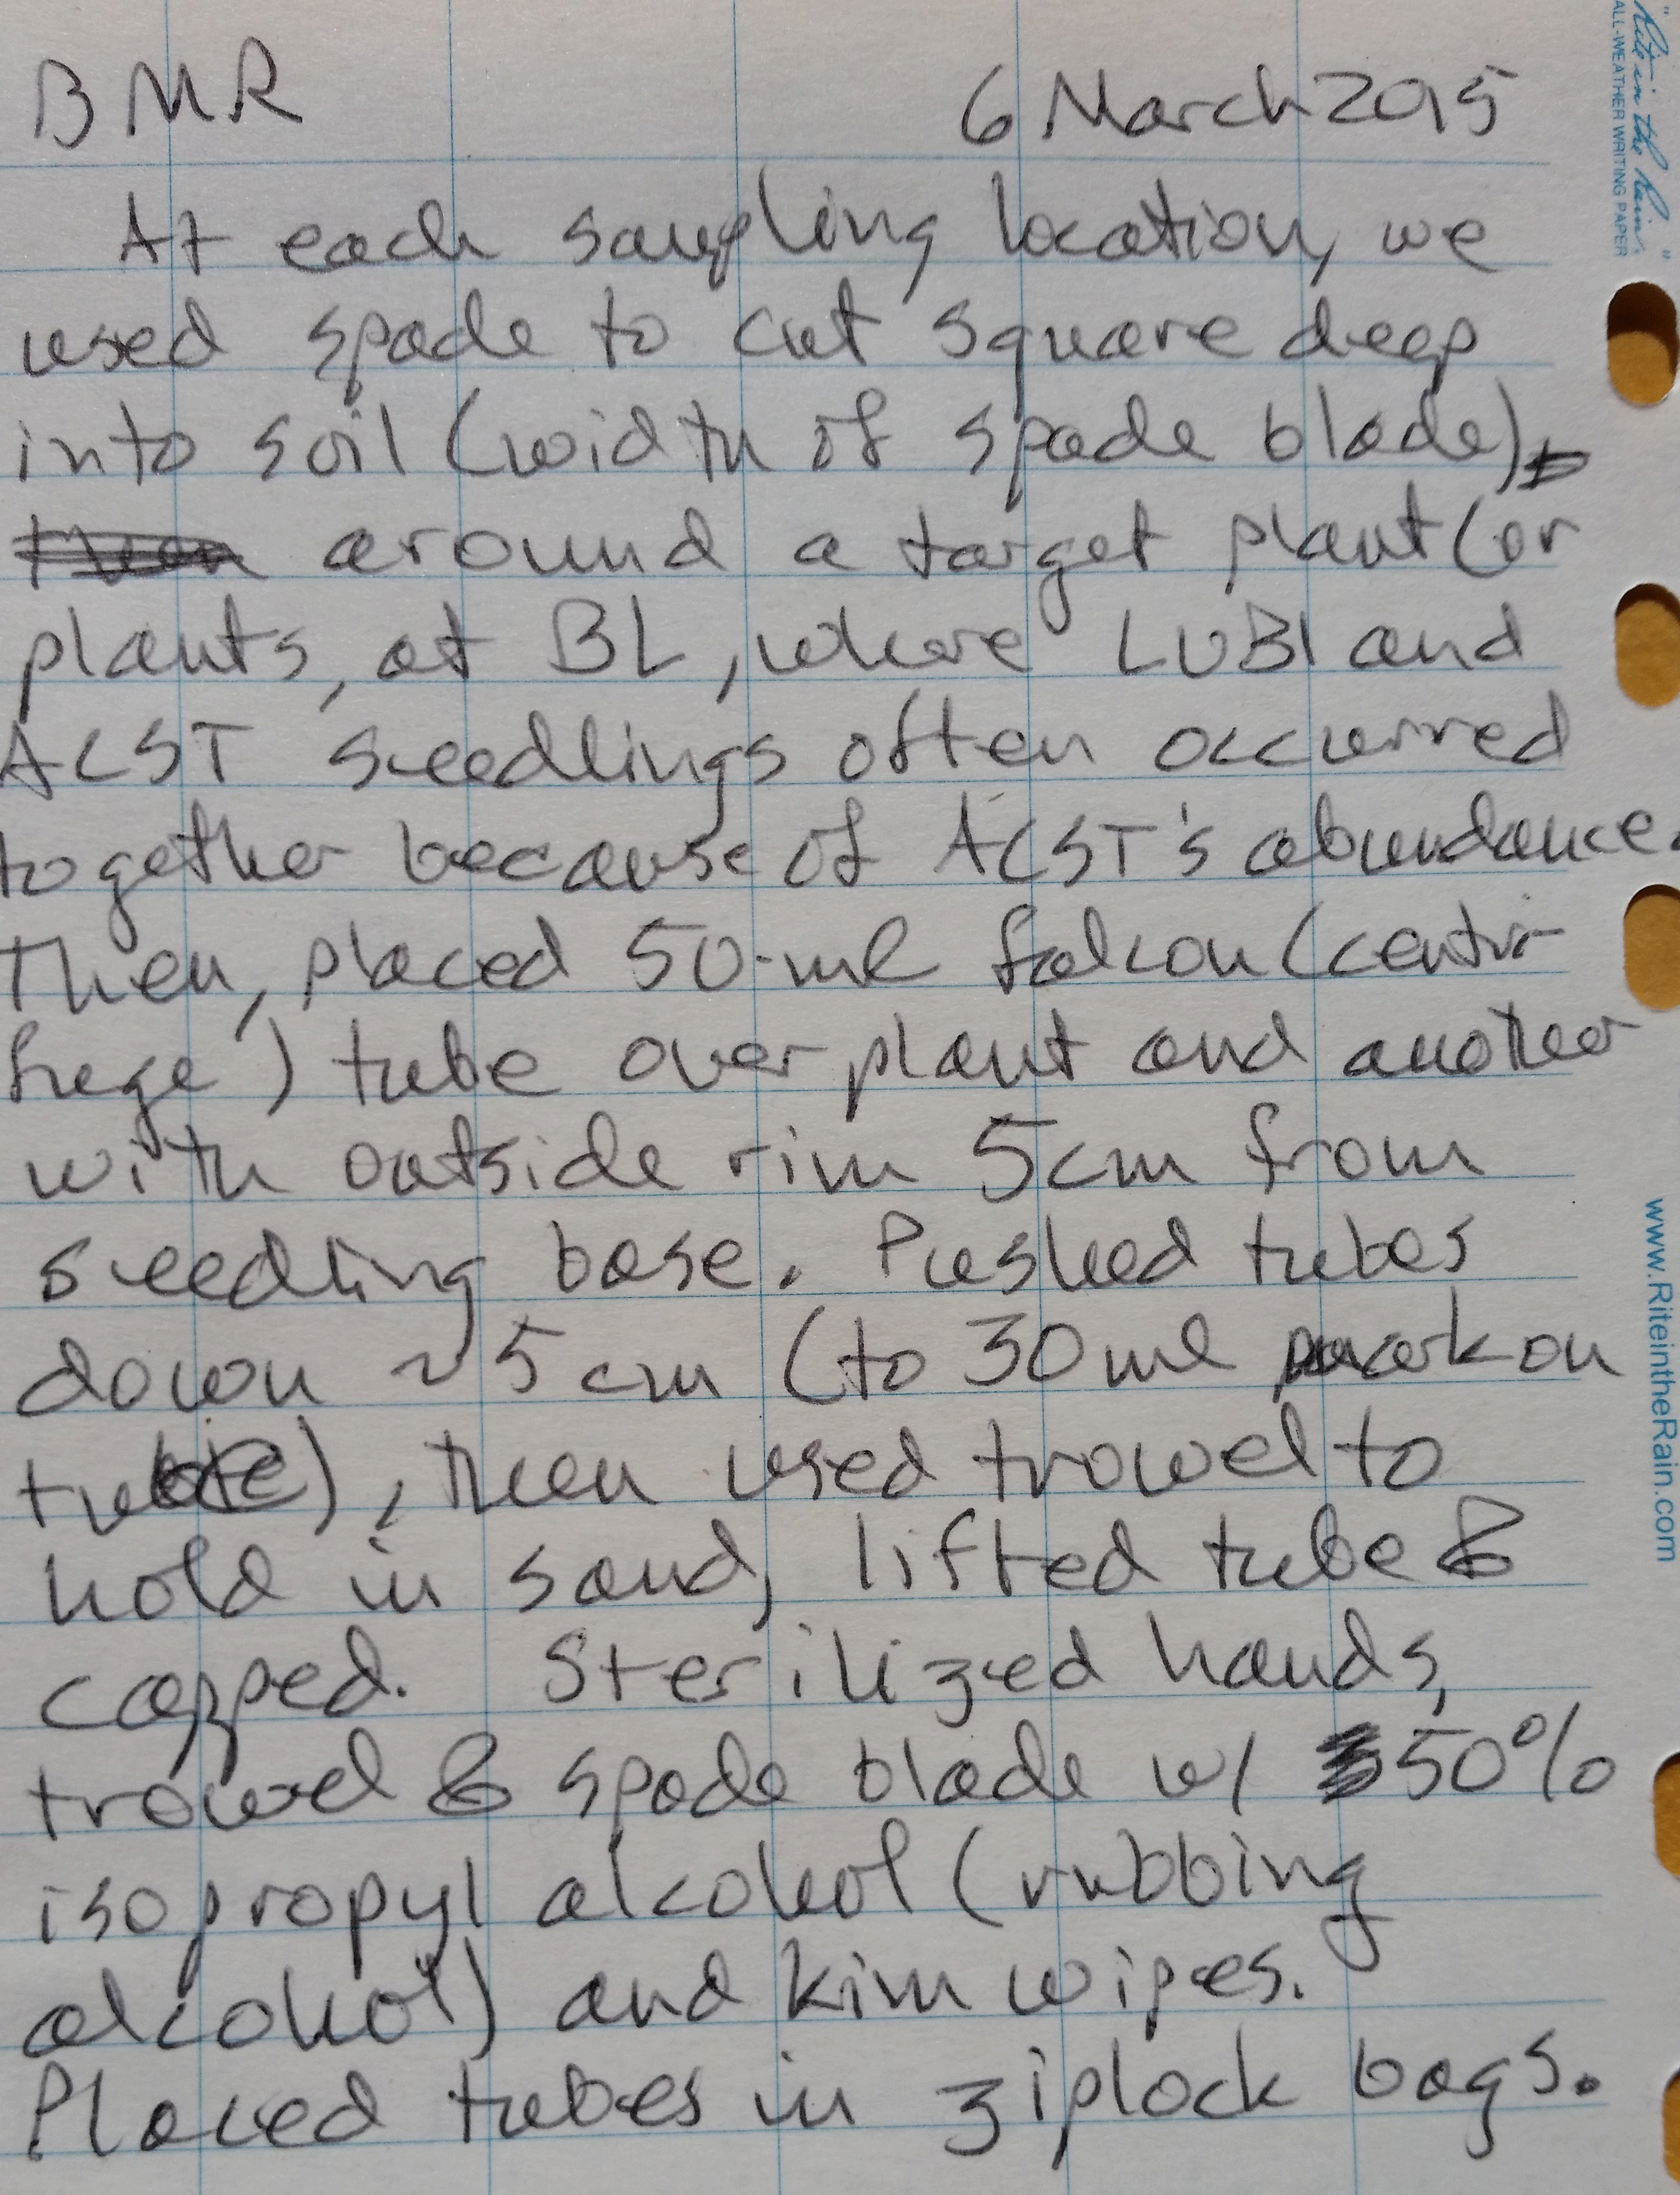 BMR 6 March 2015
At each sampling location, we
used spade to cut square deep
into soil (width of spade blade)
around a target plant (or
plants, at BL, where LUBI and
ACST seedlings often occurred
together because of ACST's abundance.
Then, placed 50-ml falcon (centri-
fuge) tube over plant and another
with outside rim 5cm from
seedling base. Pushed tubes
down ~5cm (to 30ml mark on
tube), then used trowel to
hold in sand, lifted tube &
capped. Sterilized hands,
trowel & spade blade w/ 50%
isopropyl alcohol (rubbing
alcohol) and kim wipes.
Placed tubes in ziplock bags.
"Rite in the Rain"
ALL-WEATHER WRITING PAPER
www.RiteintheRain.com